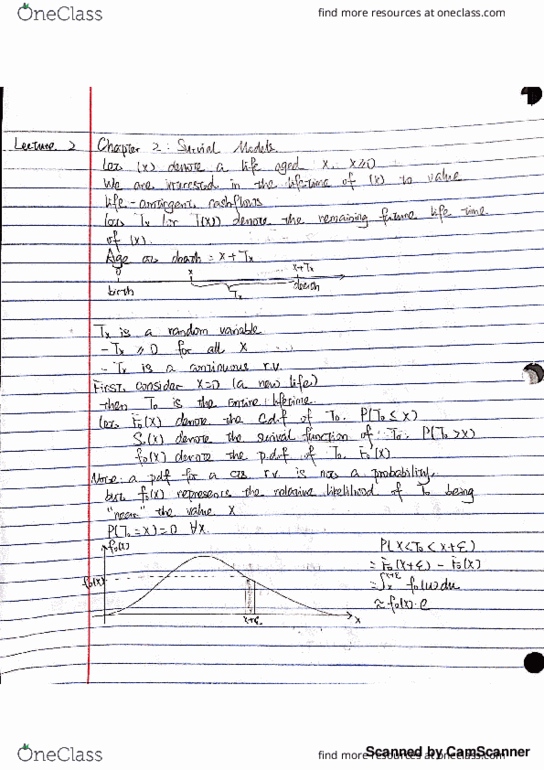 OneClass
find more resources at oneclass.com
Lecture 2
Chapter 2: Survival Models
Let (x) denote a life aged x, x≥0
We are interested in the lifetime of (x) to value
life-contingent cashflows
Let Tx (or T(x)) denote the remaining future life time
of (x).
Age at death = x+Tx
0 x x+Tx
birth Tx death
Tx is a random variable
- Tx ≥ 0 for all x
- Tx is a continuous r.v.
First, consider x=0 (a new life)
then T0 is the entire lifetime.
Let F0(x) denote the c.d.f of T0. P(T0 ≤ x)
S0(x) denote the survival function of T0: P(T0 > x)
f0(x) denote the p.d.f of T0. F0'(x).
Note: a pdf for a cts r.v. is not a probability.
but f0(x) represents the relative likelihood of T0 being
"near" the value x
P(T0 = x) = 0 ∀x.
f0(x)
f0(x)
x+ε
x
P(x<T0<x+ε)
= F0(x+ε) - F0(x)
= ∫x^x+ε f0(u)du
≈ f0(x)·ε
OneClass
find more resources at oneclass.com
Scanned by CamScanner